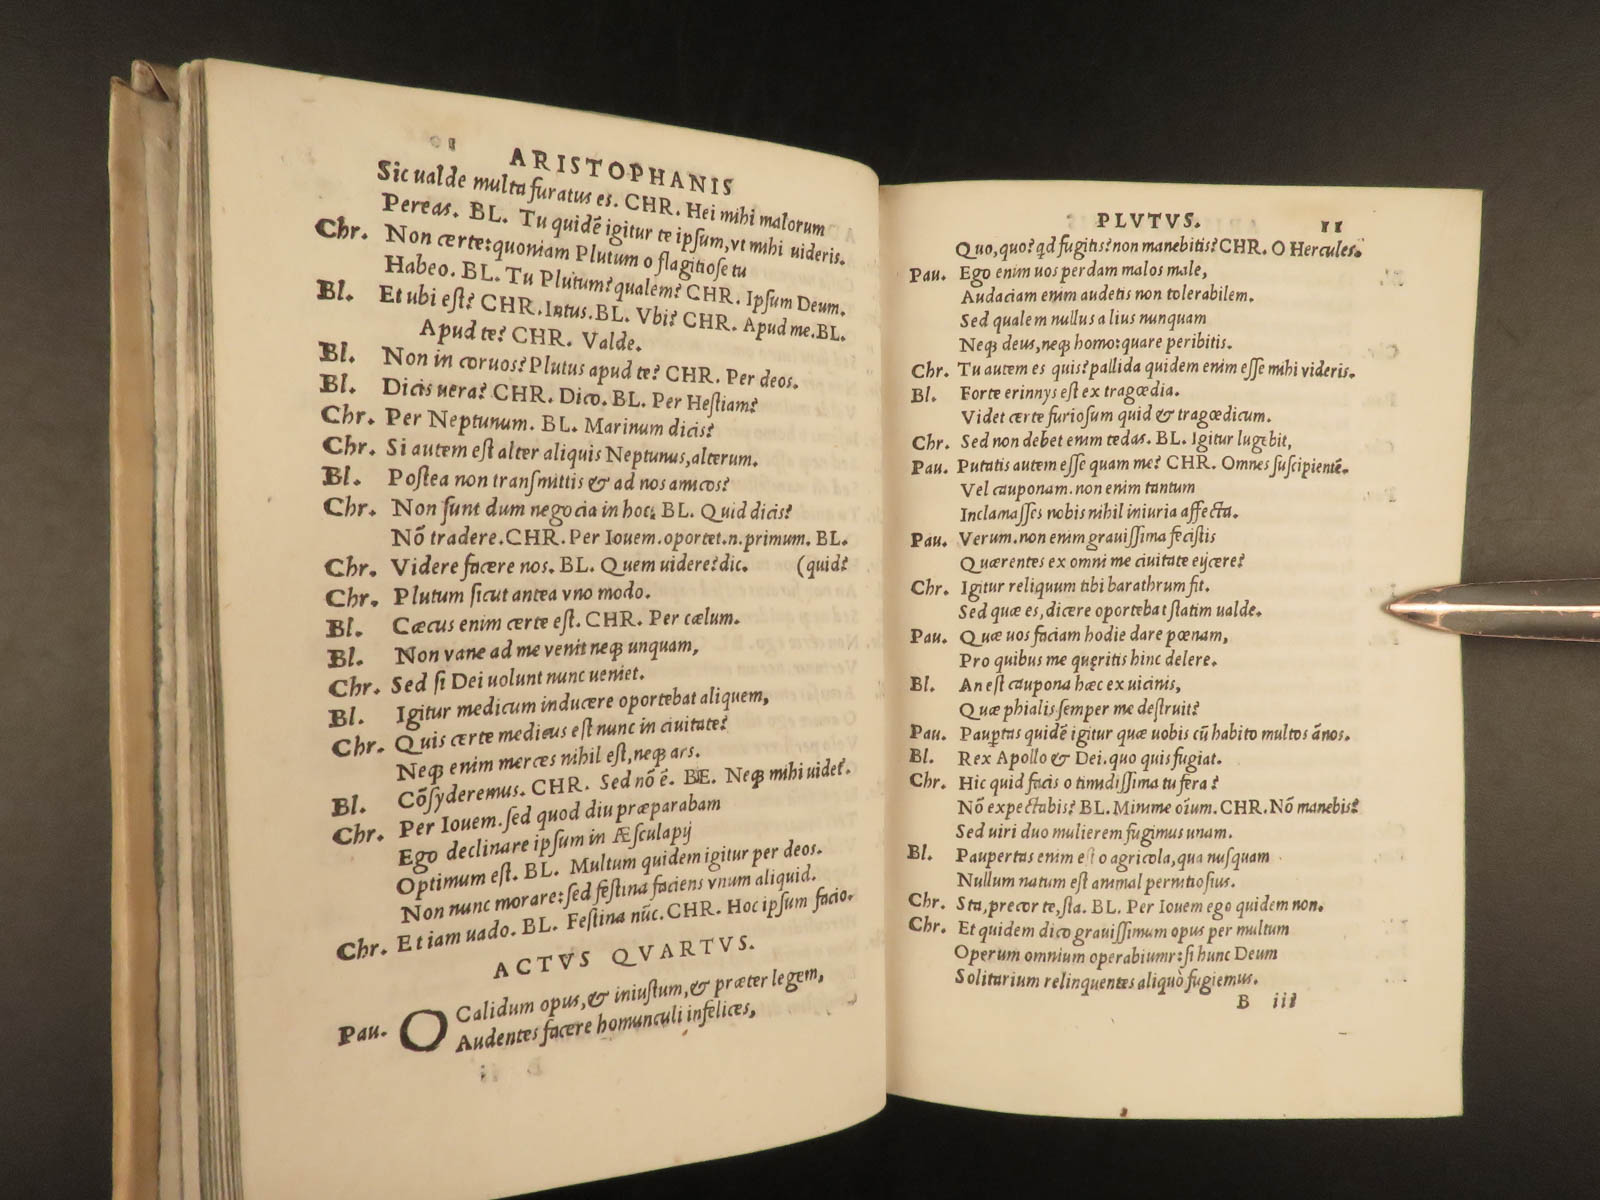 ARISTOPHANIS
Sic ualde multa furatus es. CHR. Hei mihi malorum
Pereas. BL. Tu quidē igitur te ipsum, vt mihi uideris.
Chr. Non certe: quoniam Plutum o flagitiose tu
Habeo. BL. Tu Plutum? qualem? CHR. Ipsum Deum.
Bl. Et ubi est? CHR. Intus. BL. Vbi? CHR. Apud me. BL.
Apud te? CHR. Valde.
Bl. Non in coruos? Plutus apud te? CHR. Per deos.
Bl. Dicis uera? CHR. Dico. BL. Per Hestiam?
Chr. Per Neptunum. BL. Marinum dicis?
Chr. Si autem est alter aliquis Neptunus, alterum.
Bl. Postea non transmittis & ad nos amicos?
Chr. Non sunt dum negocia in hoc. BL. Quid dicis?
Nō tradere. CHR. Per Iouem. oportet. n. primum. BL.
Chr. Videre facere nos. BL. Quem uidere? dic. (quid?
Chr. Plutum sicut antea vno modo.
Bl. Cæcus enim certe est. CHR. Per cælum.
Bl. Non vane ad me venit neqꝫ unquam,
Chr. Sed si Dei uolunt nunc ueniet.
Bl. Igitur medicum inducere oportebat aliquem,
Chr. Quis certe medicus est nunc in ciuitate?
Neqꝫ enim merces nihil est, neqꝫ ars.
Bl. Cōsyderemus. CHR. Sed nō ē. BE. Neqꝫ mihi uidet̃.
Chr. Per Iouem. sed quod diu præparabam
Ego declinare ipsum in Æsculapij
Optimum est. BL. Multum quidem igitur per deos.
Non nunc morare: sed festina faciens vnum aliquid.
Chr. Et iam uado. BL. Festina nūc. CHR. Hoc ipsum facio.
ACTVS QVARTVS.
Pau. O Calidum opus, & iniustum, & præter legem,
Audentes facere homunculi infelices,
PLVTVS. 11
Quo, quo? qd fugitis? non manebitis? CHR. O Hercules.
Pau. Ego enim uos perdam malos male,
Audaciam enim audetis non tolerabilem.
Sed qualem nullus alius nunquam
Neqꝫ deus, neqꝫ homo: quare peribitis.
Chr. Tu autem es quis? pallida quidem enim esse mihi videris.
Bl. Forte erinnys est ex tragœdia.
Videt certe furiosum quid & tragœdicum.
Chr. Sed non debet enim tedas. BL. Igitur lugebit,
Pau. Putatis autem esse quam me? CHR. Omnes suscipientē.
Vel cauponam. non enim tantum
Inclamasses nobis nihil iniuria affecta.
Pau. Verum. non enim grauissima fecistis
Quærentes ex omni me ciuitate eijcere?
Chr. Igitur reliquum tibi barathrum fit.
Sed quæ es, dicere oportebat statim ualde.
Pau. Quæ uos faciam hodie dare pœnam,
Pro quibus me quęritis hinc delere.
Bl. An est caupona hæc ex uicinis,
Quæ phialis semper me destruit?
Pau. Paup̱tas quidē igitur quæ uobis cū habito multos ānos.
Bl. Rex Apollo & Dei. quo quis fugiat.
Chr. Hic quid facis o timidissima tu fera?
Nō expectabis? BL. Minime oīum. CHR. Nō manebis?
Sed uiri duo mulierem fugimus unam.
Bl. Paupertas enim est o agricola, qua nusquam
Nullum natum est animal pernitiosius.
Chr. Sta, precor te, sta. BL. Per Iouem ego quidem non.
Chr. Et quidem dico grauissimum opus per multum
Operum omnium operabimur: si hunc Deum
Solitarium relinquentes aliquò fugiemus.
B iii